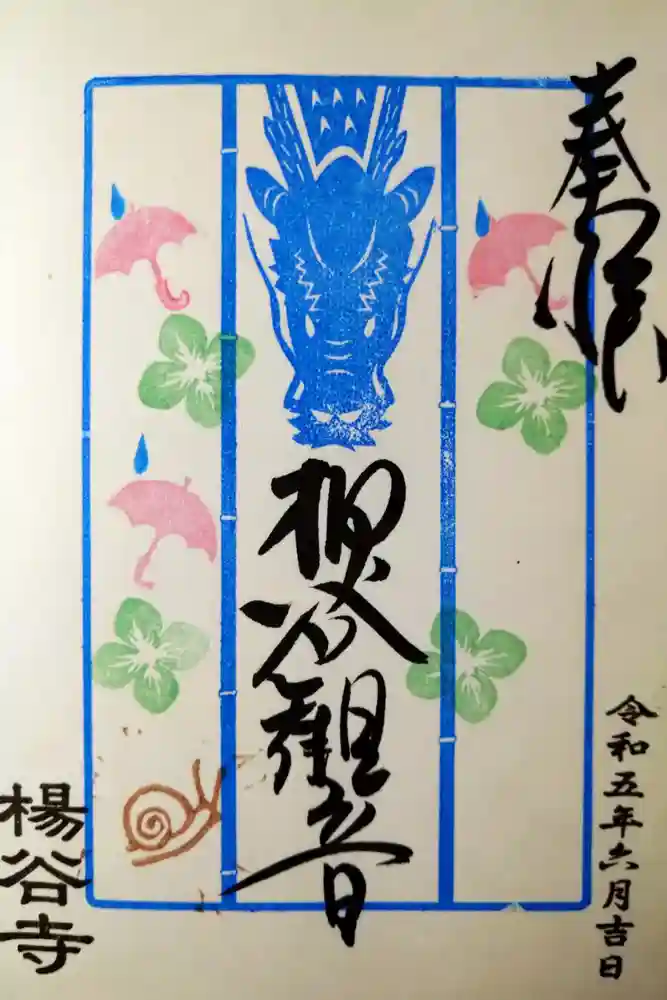 奉拝
楊谷観音
令和五年六月吉日
楊谷寺